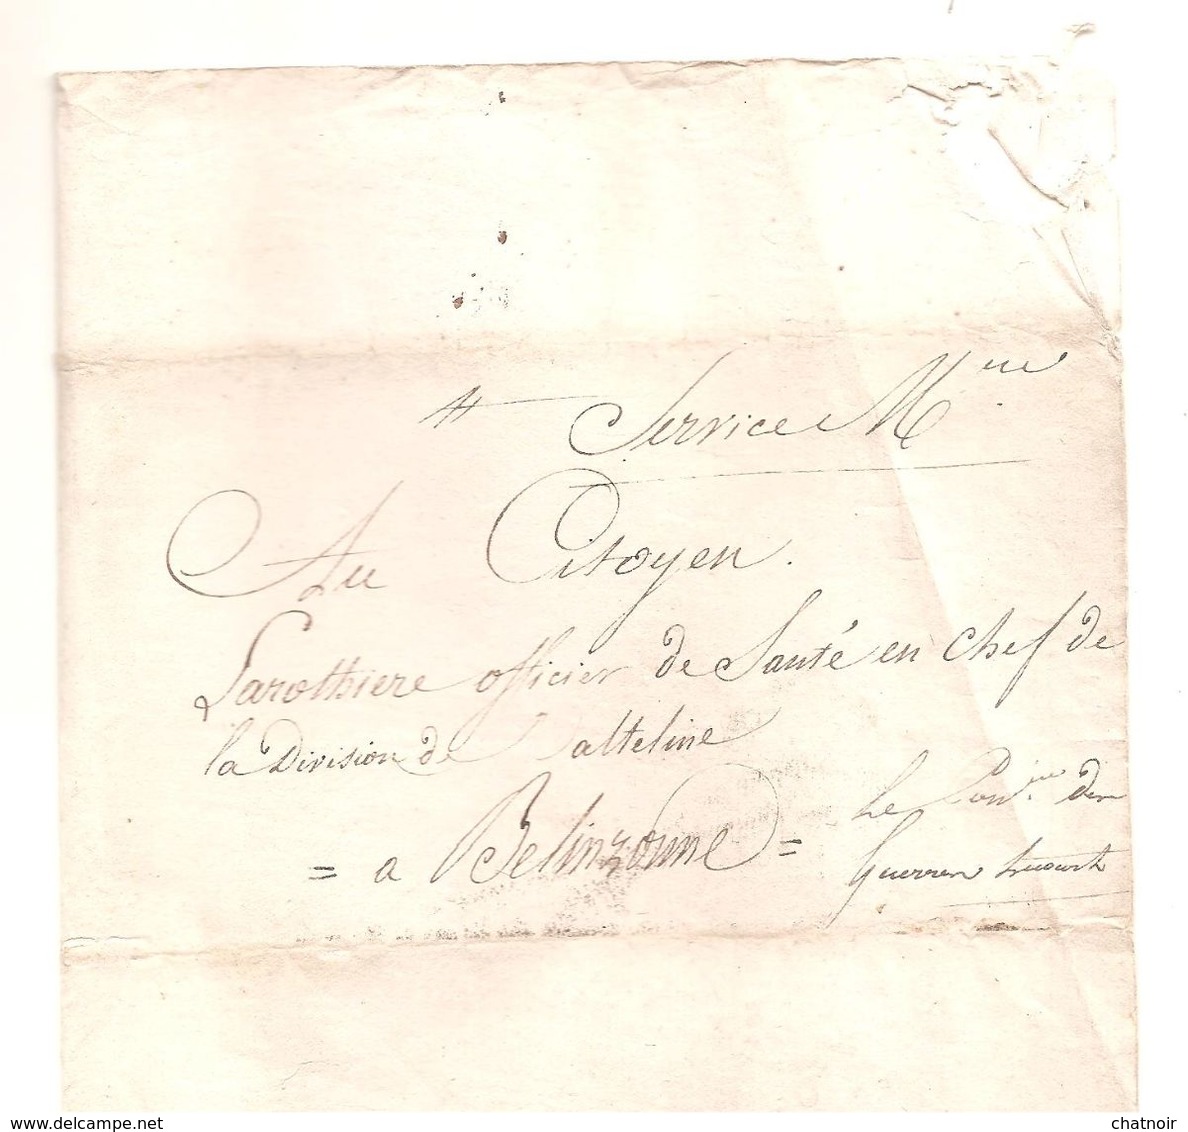 Service M.re
Au Citoyen.
Larothiere officier de Santé en chef de
la Division de Valteline
= a Belinzonne =
Le Com.re des
Guerres
www.delcampe.net
chatnoir